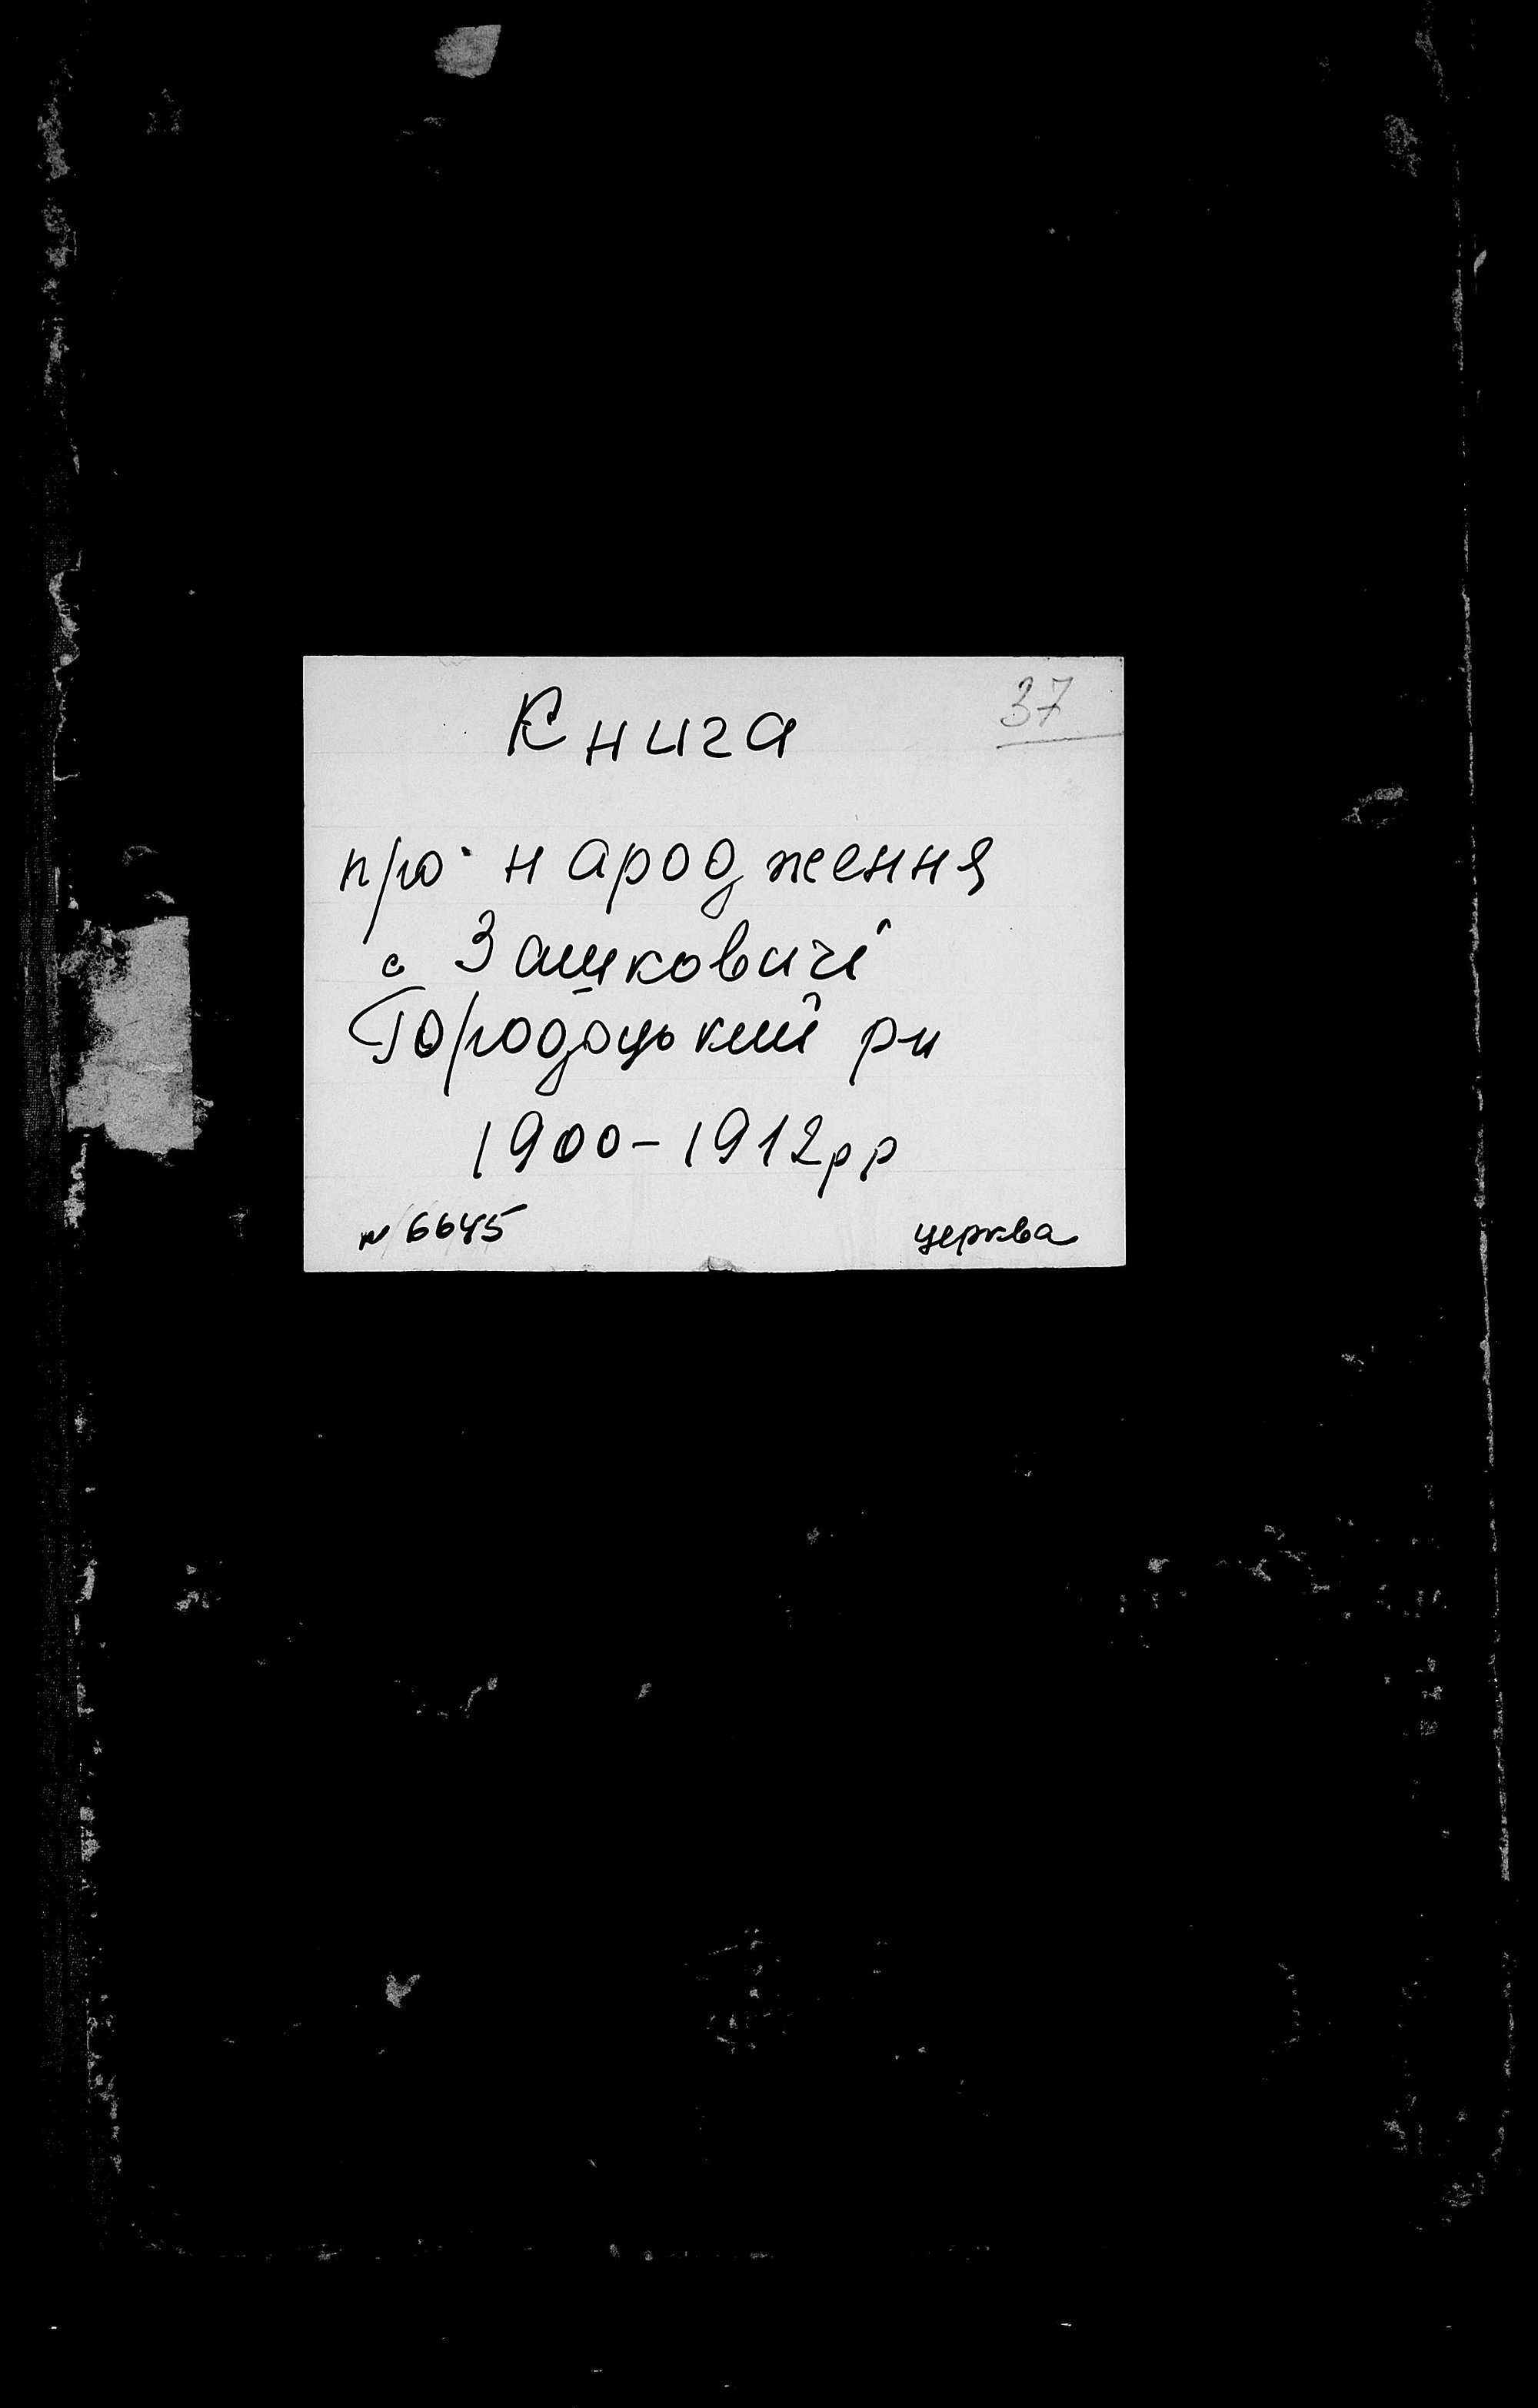 37
Книга
про народження
с Зашковичі
Городоцький р-н
1900-1912рр
№ 6645
церква